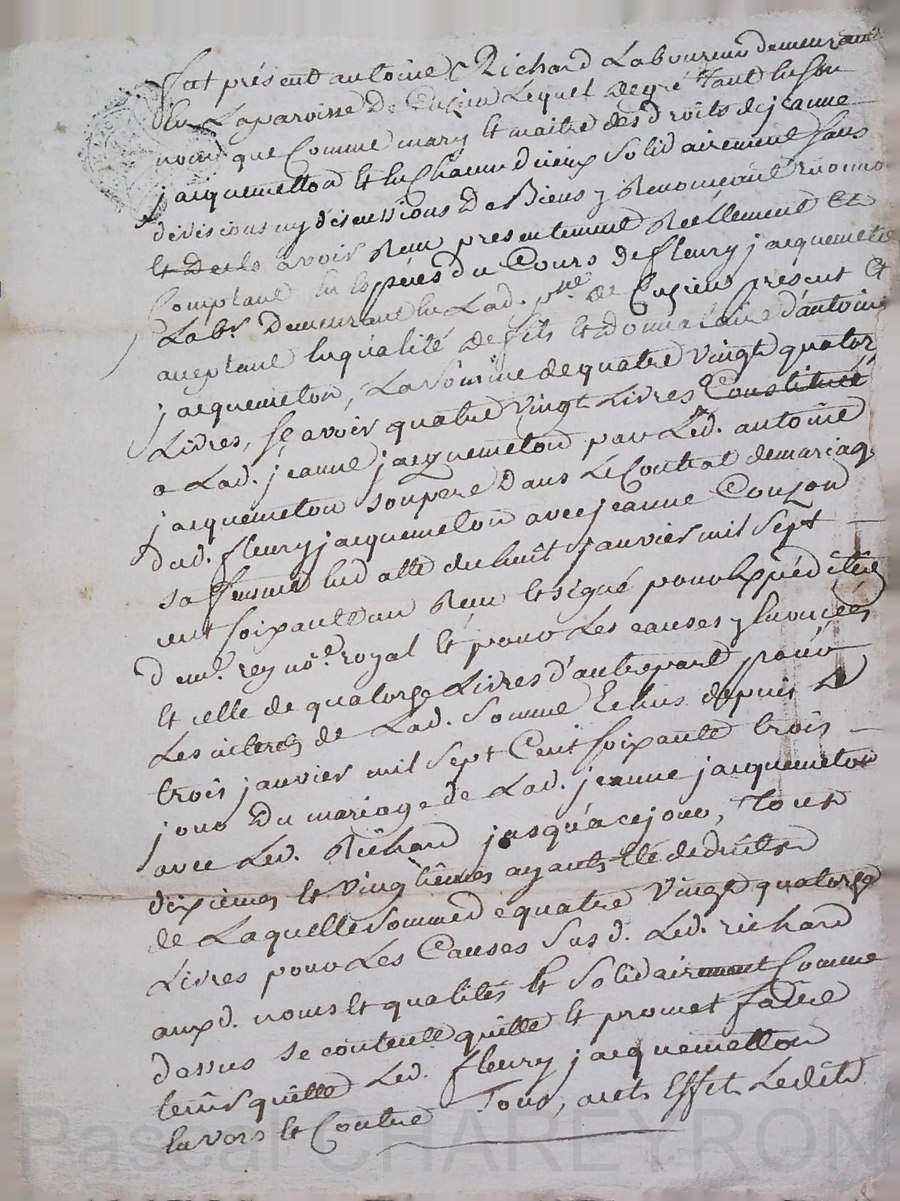 fut présent antoine Richard Laboureur demeurant
En La paroisse De Cuzieu Lequel degré tant En son
nom que Comme mary Et maitre des droits de jeanne
jacquemetton Et En Chacun d'ieux Solidairement sans
divisions ny discussions De Biens y Renonceant Reconnoit
Et De lo avoir Reçu presentement Reellement Et
Comptant En Espèces du Cours de fleury jacquemeton
Labr. Demeurant En Lad. pse. de Cuzieu present Et
aceptant En qualité De fils Et donnataire d'antoine
jacquemeton, La somme de quatre vingt quatorze
Livres, sçavoir quatre vingt Livres Constitué
a Lad. jeanne jacquemeton par Led. antoine
jacquemeton son pere Dans Le Contrat de mariage
dud. fleury jacquemeton avec jeanne Couzon
sa femme En datte du huit janvier mil sept
cent soixante un Reçu Et signé pour Expédition
De me. rey nore. royal Et pour Les causes y Enoncées
Et celle de quatorze Livres d'autre part pour
Les interets de Lad. Somme Echus depuis Le
trois janvier mil Sept Cent soixante trois
jour Du mariage de Lad. jeanne jacquemeton
avec Led. Richard jusqu'a ce jour, Tous
dixièmes Et vingtièmes ayants Eté deduits
de Laquelle somme de quatre vingt quatorze
Livres pour Les Causes Susd. Led. richard
auxd. noms Et qualités Et Solidairement Comme
dessus se contente quitte Et promet faire
tenir quitte Led. fleury jacquemetton
Envers Et Contre Tous, a cet Effet Ledit
Pascal CHAREYRON